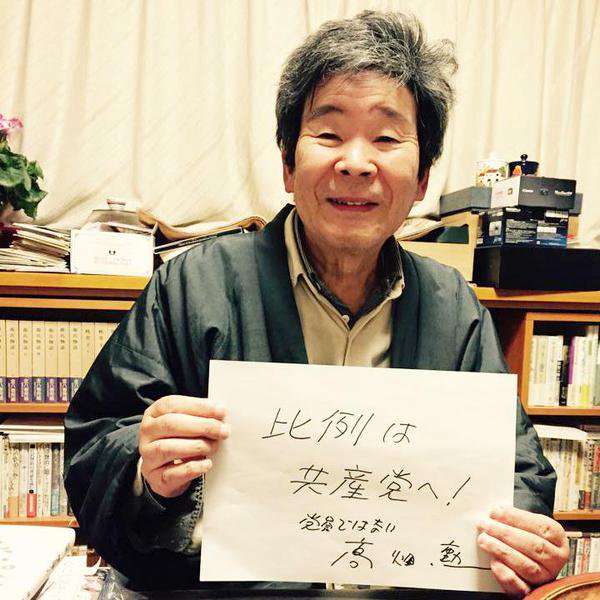 比例は
共産党へ!
党員ではない
高畑勲